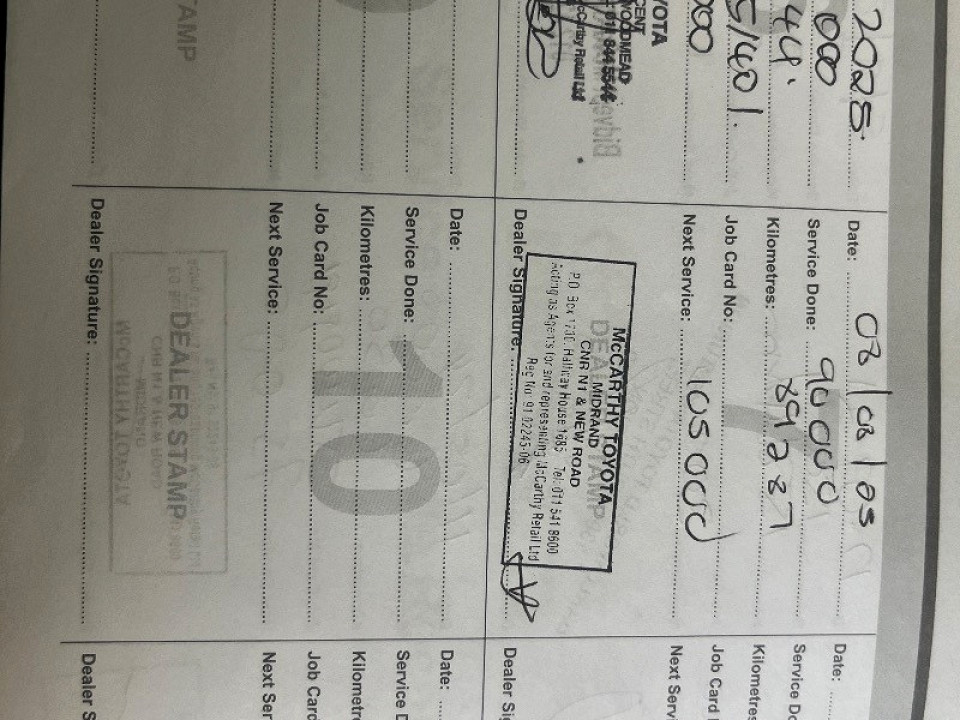 2025
000
44.
5/401.
000
YOTA
WOODMEAD
Date: 08/08/05
Service Done: 90 000
Kilometres: 89287
Job Card No:
Next Service: 105 000
McCARTHY TOYOTA
MIDRAND
CNR N1 & NEW ROAD
P.O. Box 1730, Halfway House 1685 Tel: 011 541 8600
Acting as Agents for and representing McCarthy Retail Ltd
Reg No: 91 02245-06
Dealer Signature:
Date:
Service Done:
Kilometres:
Job Card
Next Servi
Dealer S
TAMP
10
Date:
Service Done:
Kilometres:
Job Card No:
Next Service:
DEALER STAMP
Dealer Signature:
Date:
Service D
Kilometre
Job Card
Next Ser
Dealer S